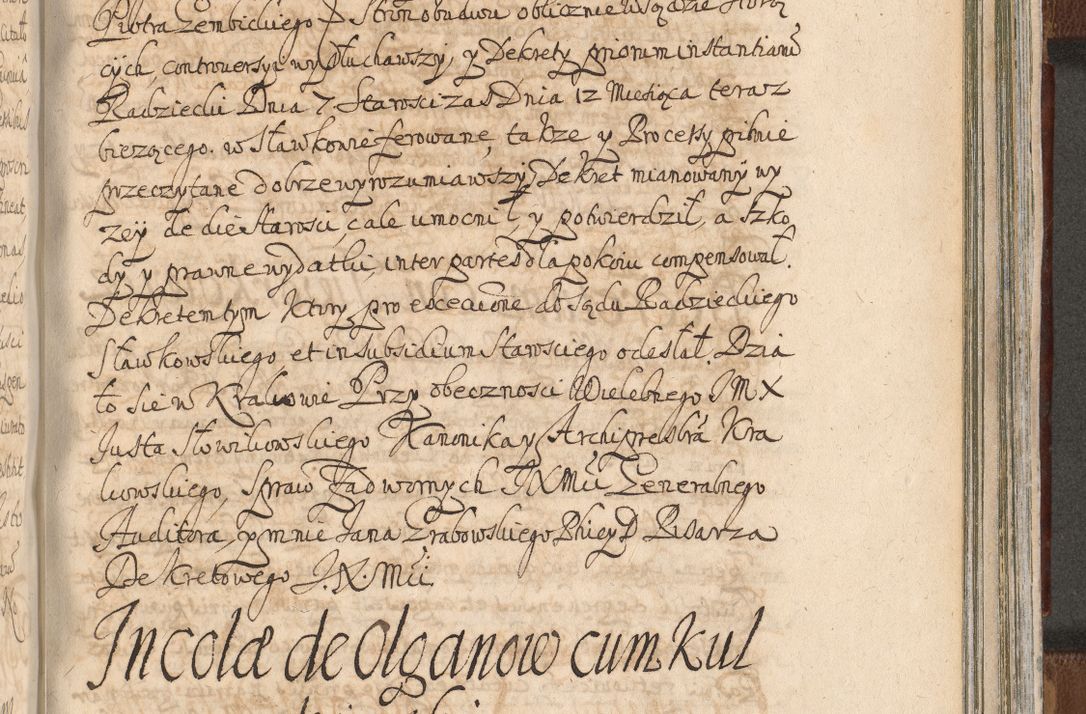 Piotra Zembickiego Stron obudwu oblicznie w sądzie stoią
cych, controversyi wysłuchawszy, y Dekrety priorum instantiarū
Radziecki Dnia 7. Starosci zas Dnia 12 Miesiąca teraz
bieżącego. w Sławkowie ferowane, także y Processy pilnie
przeczytane dobrze wyrozumiawszy, Dekret mianowany wy
zey de die Starosci, cale umocnił, y potwierdził, a szko
dy y prawne wydatki, inter partes dla pokoiu compensował.
Dekretem tym Ktory pro executione do Sądu Radzieckiego
Sławkowskiego et in subsidium Stawsciego odesłał. Dzia
to sie w Krakowie Przy obecznosci Wielebnego J M X
Justa Słowikowskiego Kanonika y Archipresbrā Kra
kowskiego, Spraw Zadwornych JXMći Generalnego
Auditora, y mnie Jana Grabowskiego Phiey D Pisarza
Dekretowego J. X. Mći
Incolæ de Olganow cum Kul